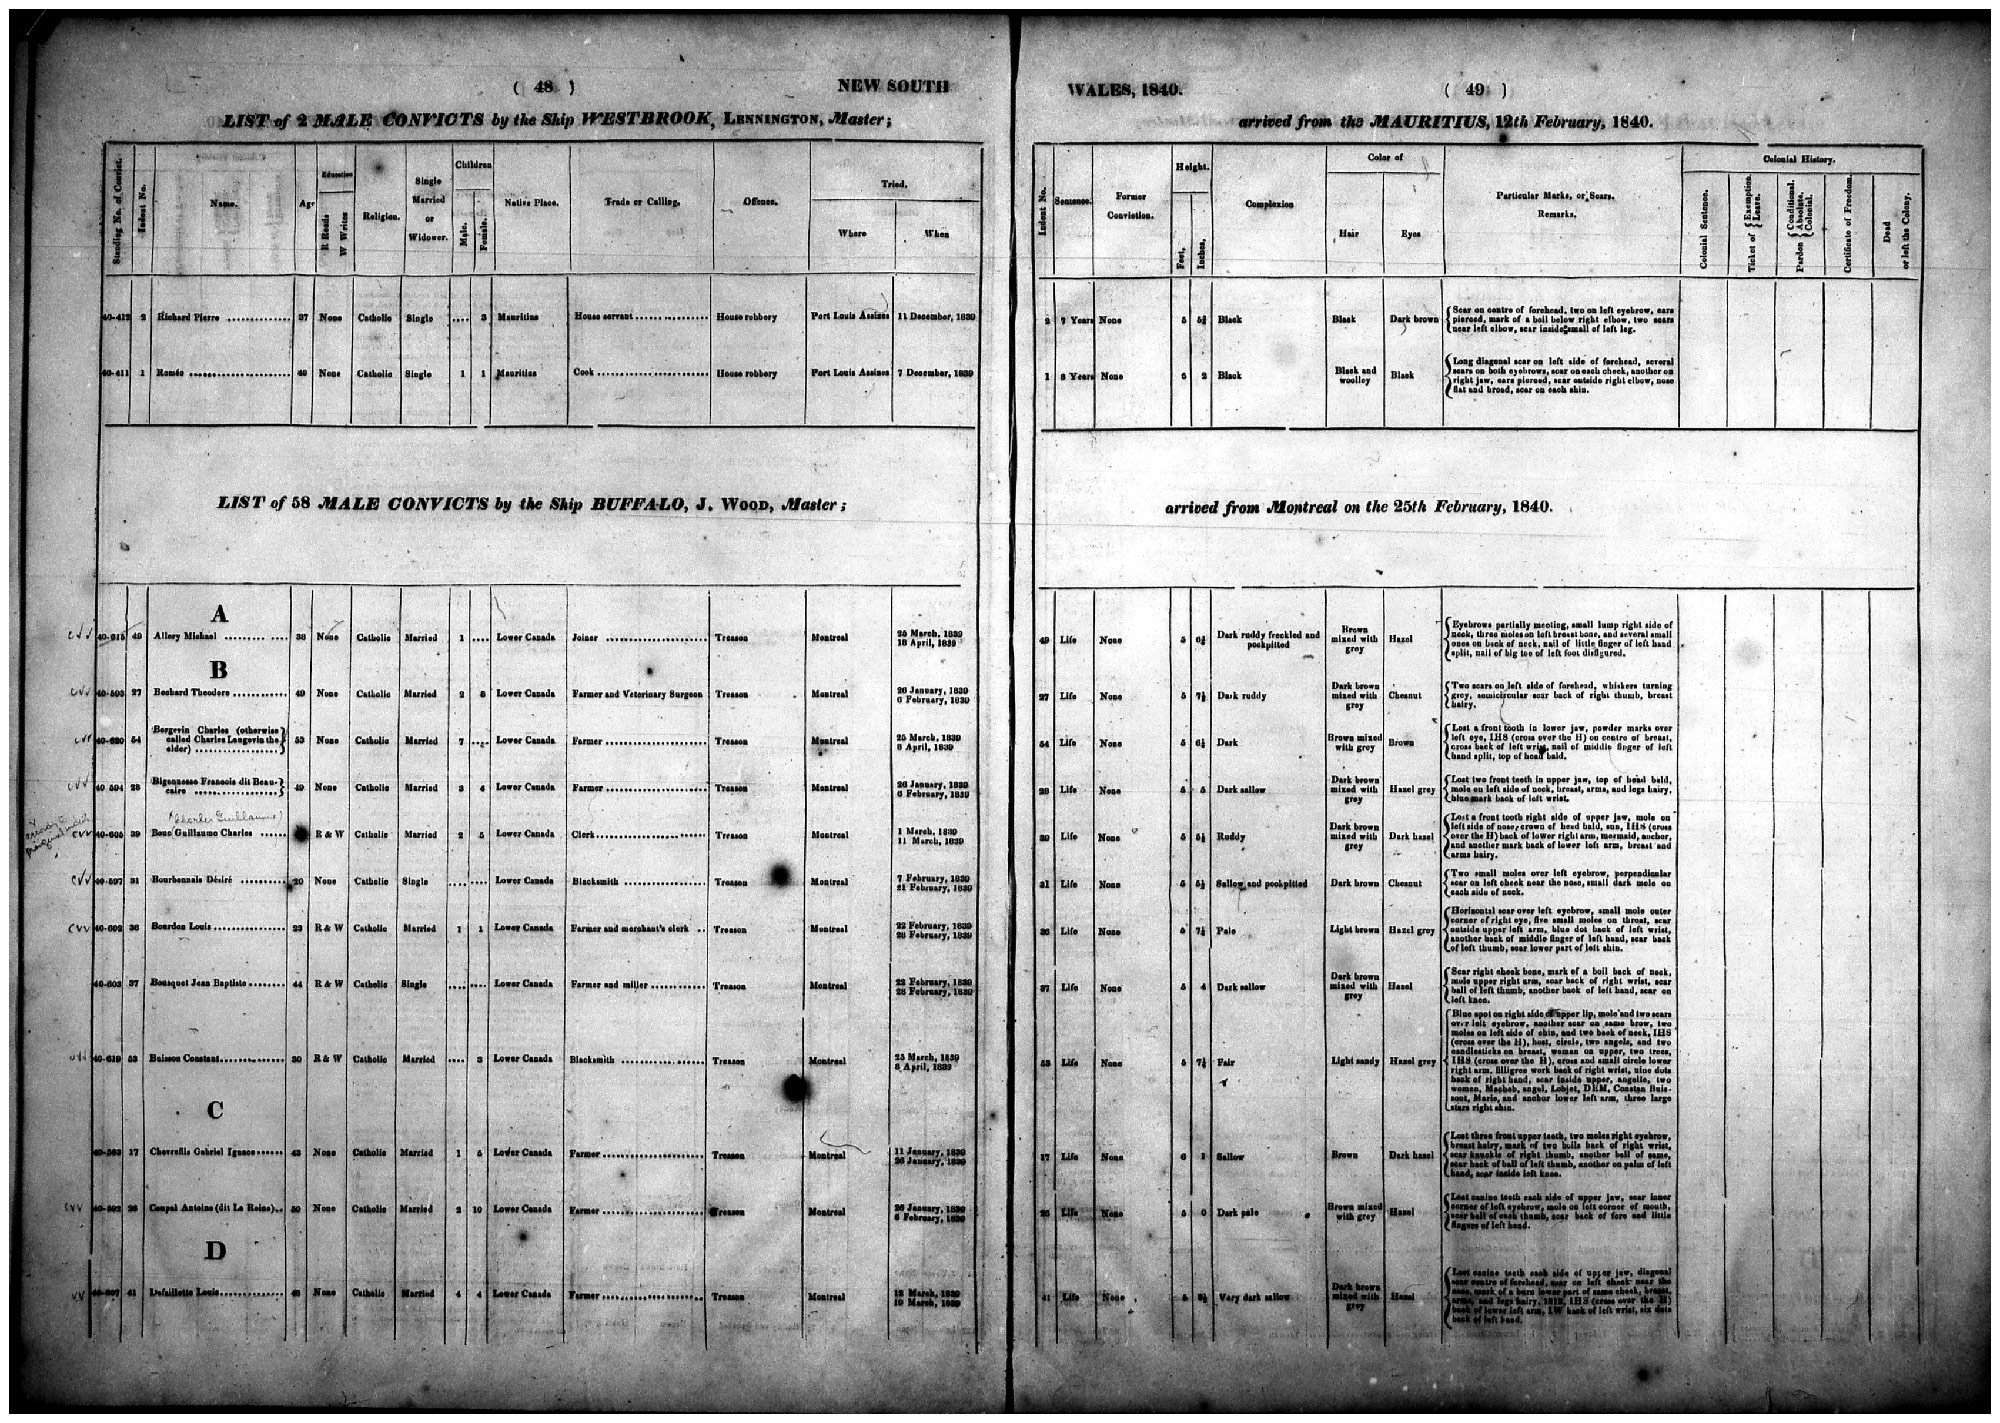 ( 48 ) NEW SOUTH
LIST of 2 MALE CONVICTS by the Ship WESTBROOK, LENNINGTON, Master;
Standing No. of Convict. Indent No. Name. Age Education R Reads W Writes Religion. Single Married or Widower. Children Male. Female. Native Place. Trade or Calling. Offence. Tried. Where When
40-412 2 Richard Pierre 37 None Catholic Single .... 3 Mauritius House servant House robbery Port Louis Assizes 11 December, 1839
40-411 1 Roméo None Catholic Single 1 1 Mauritius Cook House robbery Port Louis Assizes 7 December, 1839
LIST of 58 MALE CONVICTS by the Ship BUFFALO, J. WOOD, Master;
A
40-615 49 Allery Michael 38 None Catholic Married 1 .... Lower Canada Joiner Treason Montreal 25 March, 1839
18 April, 1839
B
40-593 27 Bechard Theodore 49 None Catholic Married 2 8 Lower Canada Farmer and Veterinary Surgeon Treason Montreal 26 January, 1839
6 February, 1839
40-620 54 Bergevin Charles (otherwise
called Charles Langevin the
elder) 53 None Catholic Married 7 .... Lower Canada Farmer Treason Montreal 25 March, 1839
8 April, 1839
40-594 28 Bigonnesse Francois dit Beau-
caire 49 None Catholic Married 3 4 Lower Canada Farmer Treason Montreal 26 January, 1839
6 February, 1839
(Charles Guillaume)
40-605 39 Bouc Guillaume Charles R & W Catholic Married 2 5 Lower Canada Clerk Treason Montreal 1 March, 1839
11 March, 1839
40-597 31 Bourbonnais Désiré 20 None Catholic Single .... .... Lower Canada Blacksmith Treason Montreal 7 February, 1839
21 February, 1839
40-602 36 Bourdon Louis 23 R & W Catholic Married 1 1 Lower Canada Farmer and merchant's clerk Treason Montreal 22 February, 1839
28 February, 1839
40-603 37 Bousquet Jean Baptiste 44 R & W Catholic Single .... .... Lower Canada Farmer and miller Treason Montreal 22 February, 1839
28 February, 1839
40-619 53 Buisson Constant 30 R & W Catholic Married .... 3 Lower Canada Blacksmith Treason Montreal 25 March, 1839
8 April, 1839
C
40-583 17 Chevrefils Gabriel Ignace 43 None Catholic Married 1 5 Lower Canada Farmer Treason Montreal 11 January, 1839
26 January, 1839
40-592 26 Coupal Antoine (dit La Reine) 50 None Catholic Married 2 10 Lower Canada Farmer Treason Montreal 26 January, 1839
6 February, 1839
D
40-607 41 Defaillette Louis None Catholic Married 4 4 Lower Canada Farmer Treason Montreal 12 March, 1839
19 March, 1839
WALES, 1840. ( 49 )
arrived from the MAURITIUS, 12th February, 1840.
Indent No. Sentence. Former Conviction. Height. Feet, Inches, Complexion Color of Hair Eyes Particular Marks, or Scars. Remarks. Colonial History. Colonial Sentence. Ticket of { Exemption. Leave. Pardon { Conditional. Absolute. Colonial. Certificate of Freedom. Dead or left the Colony.
2 7 Years None 5 Black Black Dark brown Scar on centre of forehead, two on left eyebrow, ears
pierced, mark of a boil below right elbow, two scars
near left elbow, scar inside small of left leg.
1 8 Years None 5 2 Black Black and
woolley Black Long diagonal scar on left side of forehead, several
scars on both eyebrows, scar on each cheek, another on
right jaw, ears pierced, scar outside right elbow, nose
flat and broad, scar on each shin.
arrived from Montreal on the 25th February, 1840.
49 Life None 5 Dark ruddy freckled and
pockpitted Brown
mixed with
grey Hazel Eyebrows partially meeting, small lump right side of
neck, three moles on left breast bone, and several small
ones on back of neck, nail of little finger of left hand
split, nail of big toe of left foot disfigured.
27 Life None 5 7½ Dark ruddy Dark brown
mixed with
grey Chesnut Two scars on left side of forehead, whiskers turning
grey, semicircular scar back of right thumb, breast
hairy.
54 Life None 5 6½ Dark Brown mixed
with grey Brown Lost a front tooth in lower jaw, powder marks over
left eye, IHS (cross over the H) on centre of breast,
cross back of left wrist, nail of middle finger of left
hand split, top of head bald.
28 Life None 5 5 Dark sallow Dark brown
mixed with
grey Hazel grey Lost two front teeth in upper jaw, top of head bald,
mole on left side of neck, breast, arms, and legs hairy,
blue mark back of left wrist.
39 Life None 5 5½ Ruddy Dark brown
mixed with
grey Dark hazel Lost a front tooth right side of upper jaw, mole on
left side of nose, crown of head bald, sun, IHS (cross
over the H) back of lower right arm, mermaid, anchor,
and another mark back of lower left arm, breast and
arms hairy.
31 Life None 5 5½ Sallow and pockpitted Dark brown Chesnut Two small moles over left eyebrow, perpendicular
scar on left cheek near the nose, small dark mole on
each side of neck.
36 Life None 5 7½ Pale Light brown Hazel grey Horizontal scar over left eyebrow, small mole outer
corner of right eye, five small moles on throat, scar
outside upper left arm, blue dot back of left wrist,
another back of middle finger of left hand, scar back
of left thumb, scar lower part of left shin.
37 Life None 5 4 Dark sallow Dark brown
mixed with
grey Hazel Scar right cheek bone, mark of a boil back of neck,
mole upper right arm, scar back of right wrist, scar
ball of left thumb, another back of left hand, scar on
left knee.
53 Life None 5 Fair Light sandy Hazel grey Blue spot on right side of upper lip, mole and two scars
over left eyebrow, another scar on same brow, two
moles on left side of chin, and two back of neck, IHS
(cross over the H), host, circle, two angels, and two
candlesticks on breast, woman on upper, two trees,
IHS (cross over the H), cross and small circle lower
right arm, filligree work back of right wrist, nine dots
back of right hand, scar inside upper, angelic, two
women, Macheb, angel, Lobjet, DEM, Constan Buis-
sont, Marie, and anchor lower left arm, three large
stars right shin.
17 Life None 6 1 Sallow Brown Dark hazel Lost three front upper teeth, two moles right eyebrow,
breast hairy, mark of two boils back of right wrist,
scar knuckle of right thumb, another ball of same,
scar back of ball of left thumb, another on palm of left
hand, scar inside left knee.
26 Life None 5 0 Dark pale Brown mixed
with grey Hazel Lost canine teeth each side of upper jaw, scar inner
corner of left eyebrow, mole on left corner of mouth,
scar ball of each thumb, scar back of fore and little
fingers of left hand.
41 Life None 5 Very dark sallow Dark brown
mixed with
grey Hazel Lost canine teeth each side of upper jaw, diagonal
scar centre of forehead, scar on left cheek near the
nose, mark of a burn lower part of same cheek, breast,
arms, and legs hairy, 1812, IHS (cross over the H)
back of lower left arm, IW back of left wrist, six dots
back of left hand.